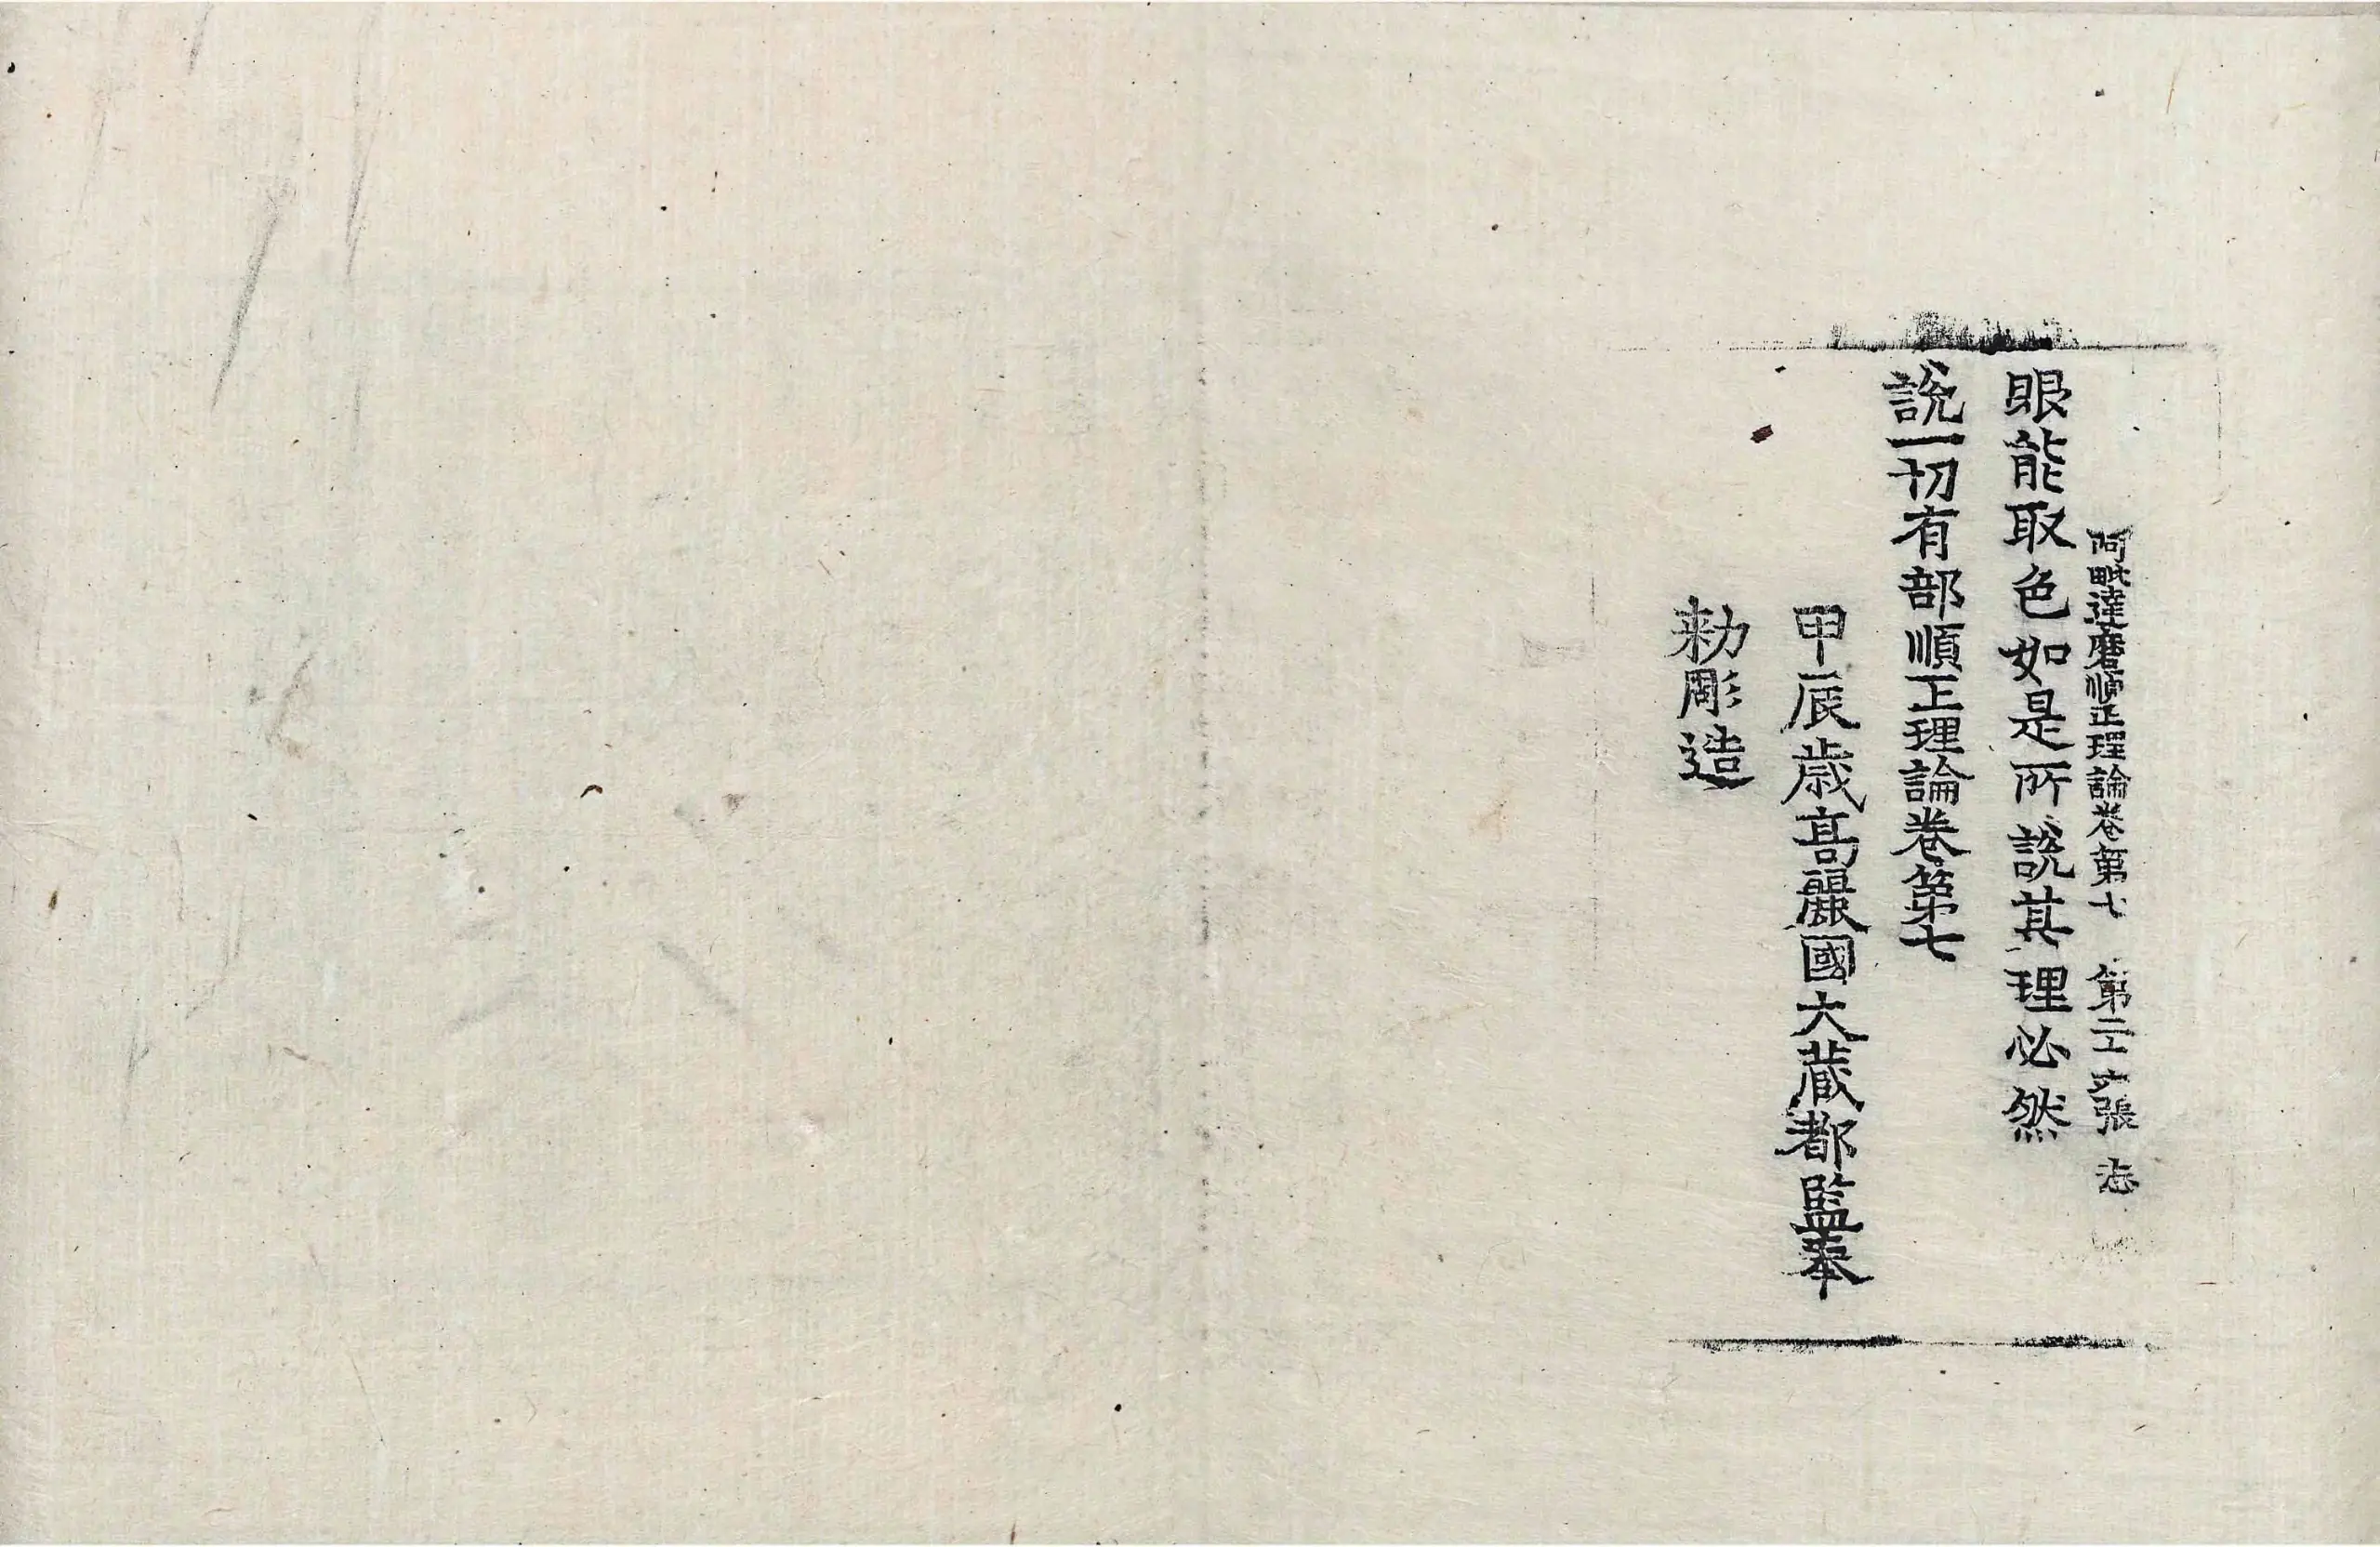 阿毗達磨順正理論卷第七　第二十六張　志
眼能取色如是所說其理必然
說一切有部順正理論卷第七
甲辰歲高麗國大藏都監奉
勑彫造